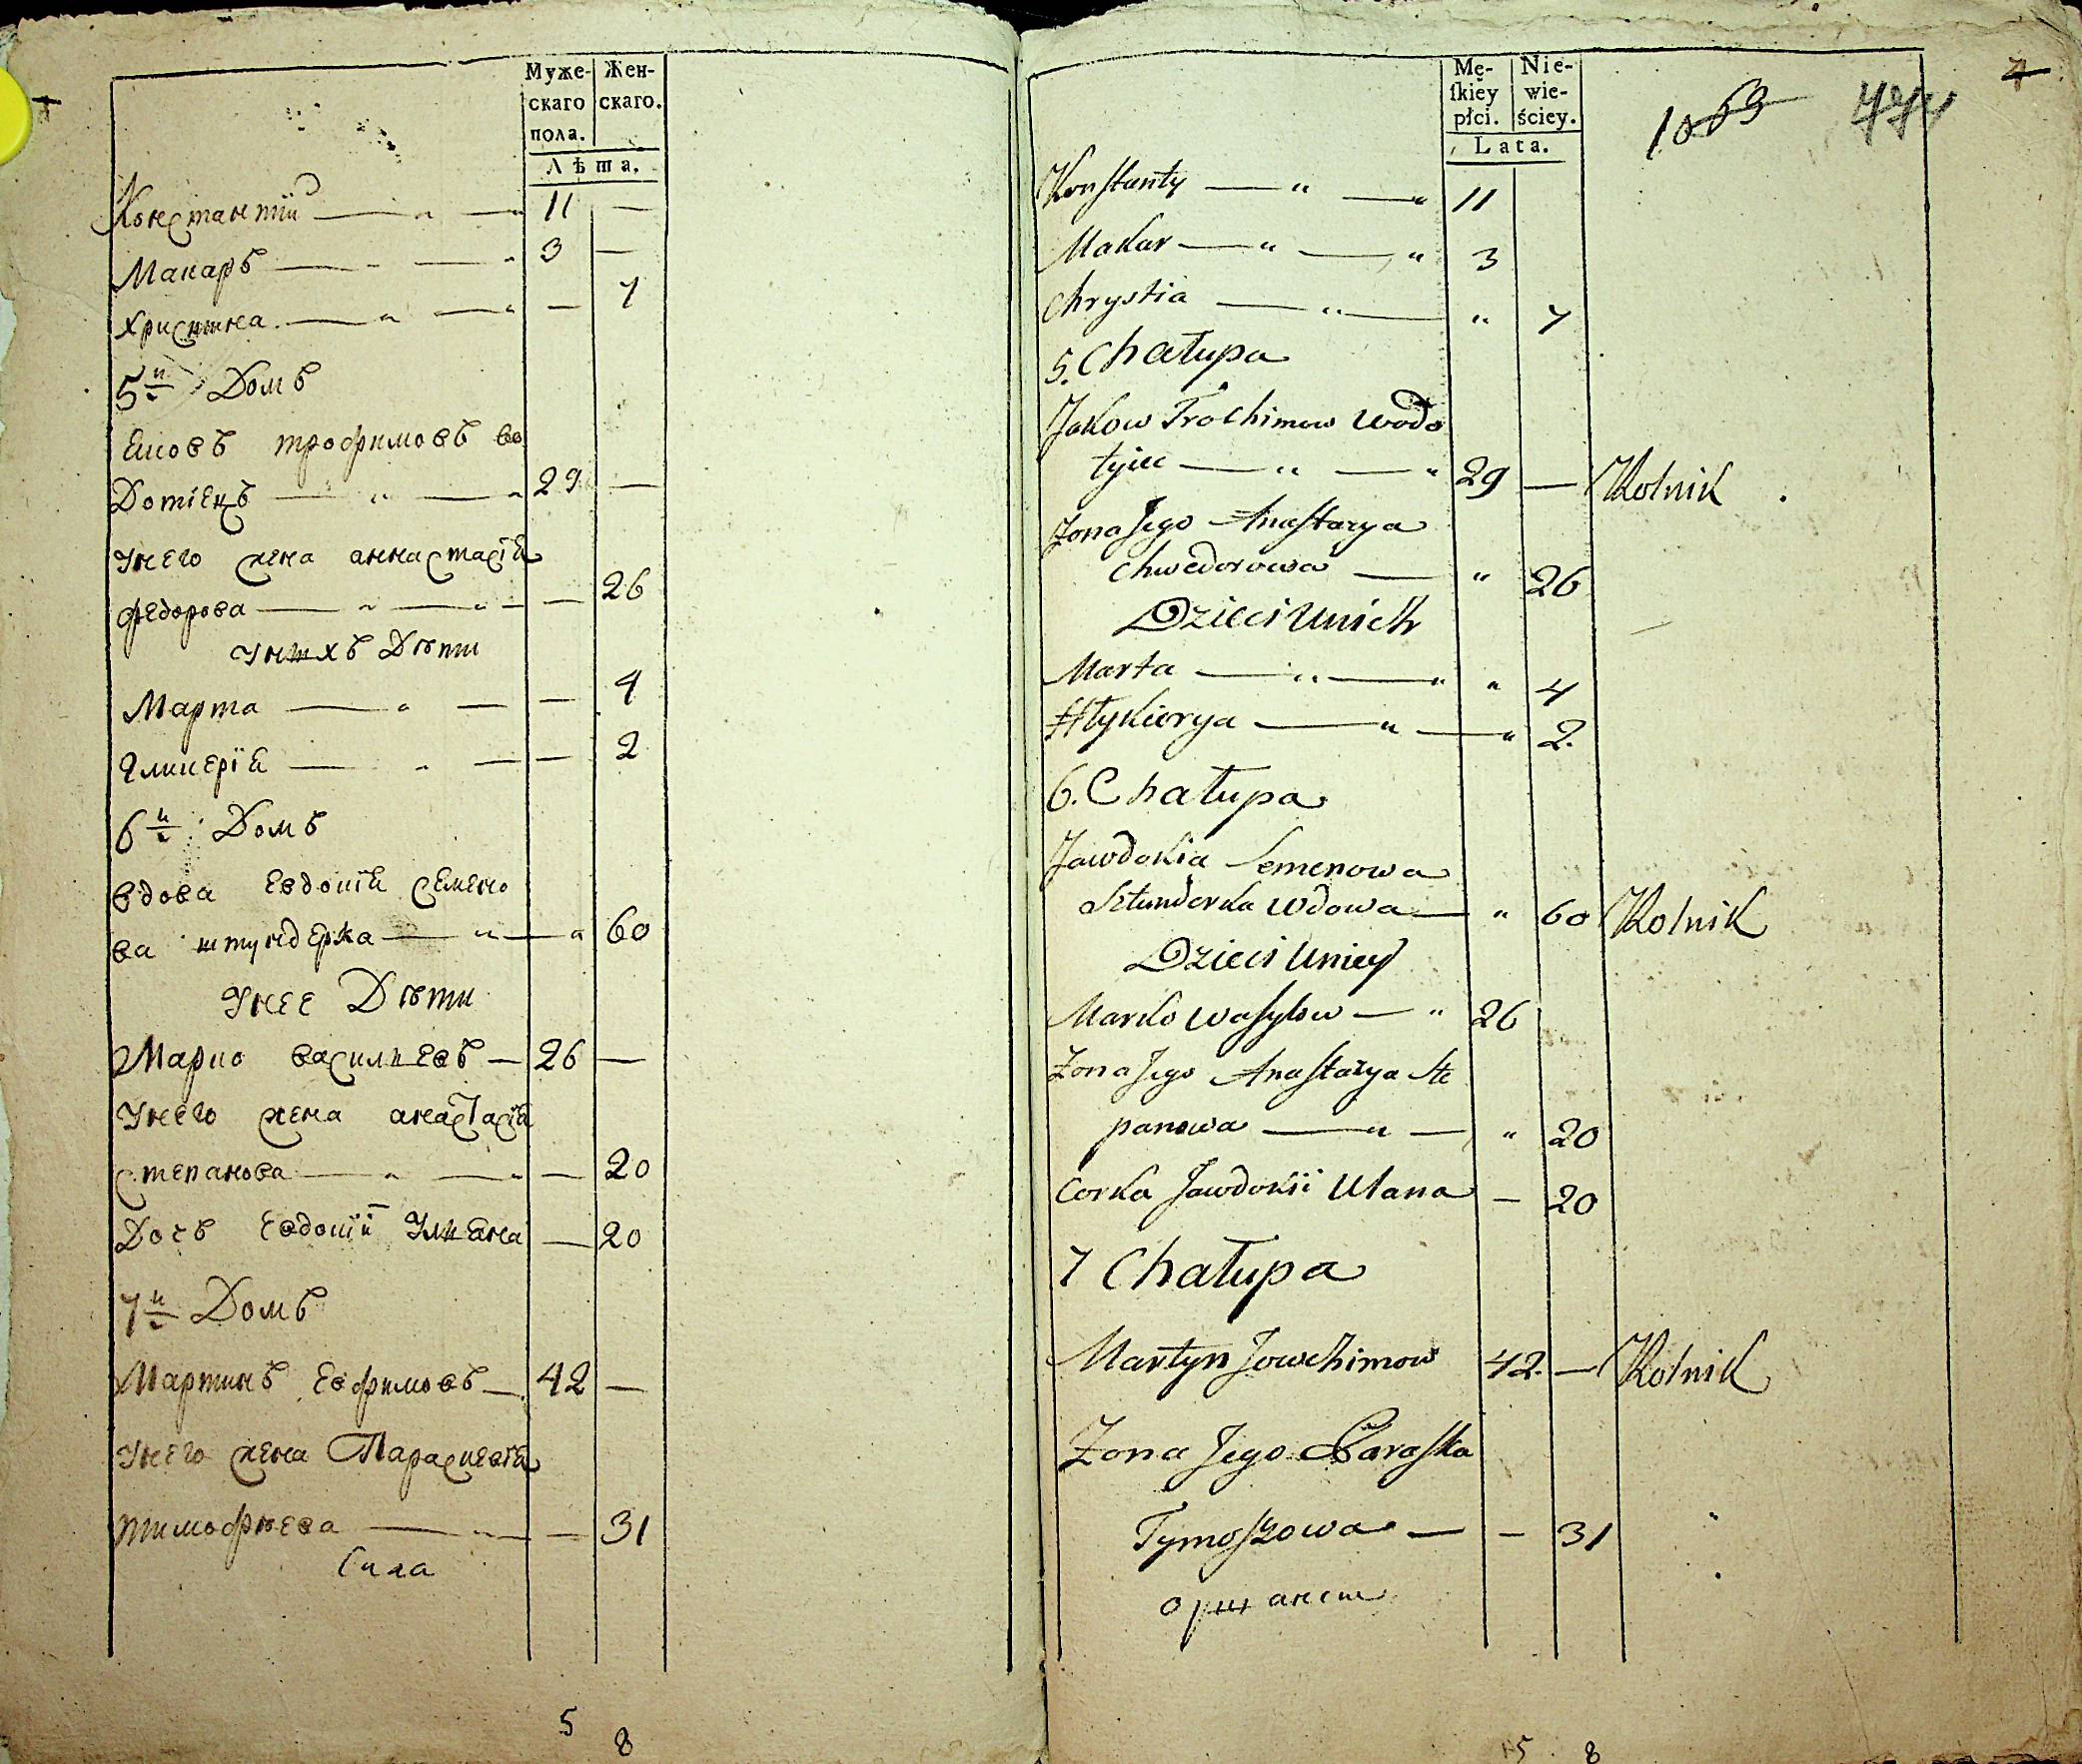 Муже- Жен-
скаго скаго.
пола.
Лѣта.
Константiй — „ — „ 11 —
Макаръ — „ — „ 3 —
Христина — „ — „ — 7
5й Домъ
Яковъ трофимовъ во
Дотiецъ — „ — „ 29 —
Унего жена аннастасiя
федорова — „ — „ — 26
Унихъ Дѣти
Марта — „ — — 4
Гликерiя — „ — — 2
6й Домъ
вдова Евдокiя семено
ва штундерка — „ — „ 60
Унее Дѣти
Марко васильевъ — 26 —
Унего жена анастасiя
степанова — „ — „ — 20
Дочъ Евдокiи Улияна — 20
7й Домъ
Мартинъ Евфимовъ — 42 —
Унего жена Параскевiя
тимофѣева — „ — 31
Сила
5 8
Mę- Nie-
ſkiey wie-
płci. ściey.
Lata.
1069
7
Konſtanty — „ — „ 11
Makar — „ — „ 3
Chrystia — „ — „ 7
5. Chałupa
Jakow Trochimow Wodo
tyiec — „ — „ 29 — Rolnik
Zona Jego Anaſtazya
Chwedorowa — „ 26
Dzieci Unich
Marta — „ — „ „ 4
Hłykierya — „ — „ 2.
6. Chałupa
Jawdokia Semenowa
Sztunderka Wdowa — „ 60 Rolnik
Dzieci Uniey
Marko Waſylow — „ 26
Zona Jego Anaſtazya Ste
panowa — „ — „ 20
Corka Jawdokii Ulana — 20
7 Chałupa
Martyn Jowchimow 42. — Rolnik
Zona Jego Paraſka
Tymoſzowa — — 31
5 8